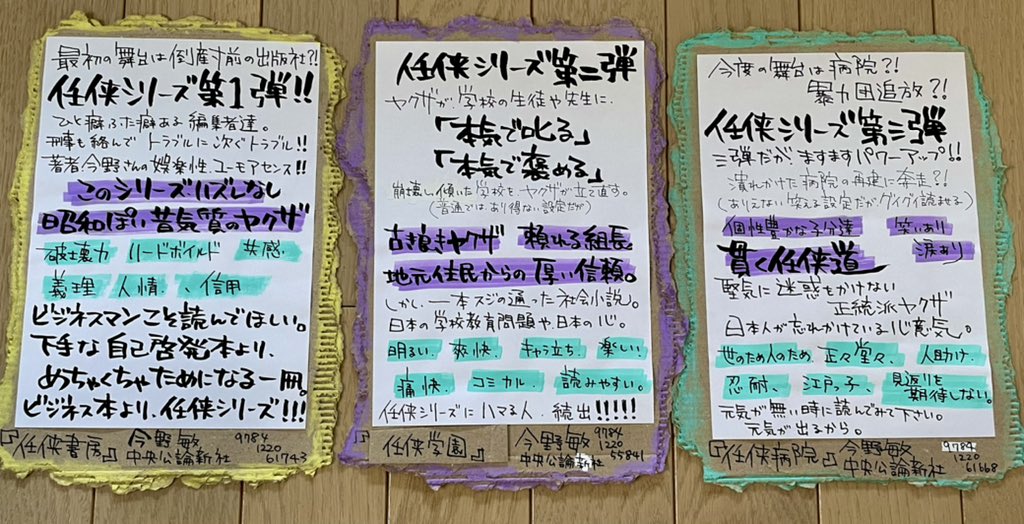 最初の舞台は倒産寸前の出版社?!
任侠シリーズ第1弾!!
ひと癖ふた癖ある編集者達。
刑事も絡んでトラブルに次ぐトラブル!!
著者今野さんの娯楽性、ユーモアセンス!!
このシリーズハズレなし
昭和ぽい昔気質のヤクザ
破壊力 ハードボイルド 共感、
義理 人情、、信用
ビジネスマンこそ読んでほしい。
下手な自己啓発本より、
めっちゃくちゃためになる一冊。
ビジネス本より、任侠シリーズ!!!
『任侠書房』 今野敏 9784
中央公論新社 1220
61743
任侠シリーズ第二弾
ヤクザが学校の生徒や先生に、
「本気で叱る」
「本気で褒める」
崩壊し傾いた学校をヤクザが立て直す。
(普通では、あり得ない設定だが)
古き良きヤクザ 頼れる組長
地元住民からの厚い信頼。
しかし、一本スジの通った社会小説。
日本の学校教育問題や、日本の心。
明るい、爽快、キャラ立ち、楽しい、
痛快、コミカル、読みやすい。
任侠シリーズにハマる人、続出!!!!!
『任侠学園』 今野敏 9784
中央公論新社 1220
55841
今度の舞台は病院?!
暴力団追放?!
任侠シリーズ第三弾
三弾だが、ますますパワーアップ!!
潰れかけた病院の再建に奔走?!
(ありえない笑える設定だが、グイグイ読ませる)
個性豊かな子分達 笑いあり
貫く任侠道 涙あり
堅気に迷惑をかけない
正統派ヤクザ
日本人が忘れかけている心意気。
世のため人のため、正々堂々、人助け、
忍耐、江戸っ子、見返りを
期待しない。
元気が無い時に読んでみて下さい。
元気が出るから。
『任侠病院』 今野敏 9784
中央公論新社 1220
61668